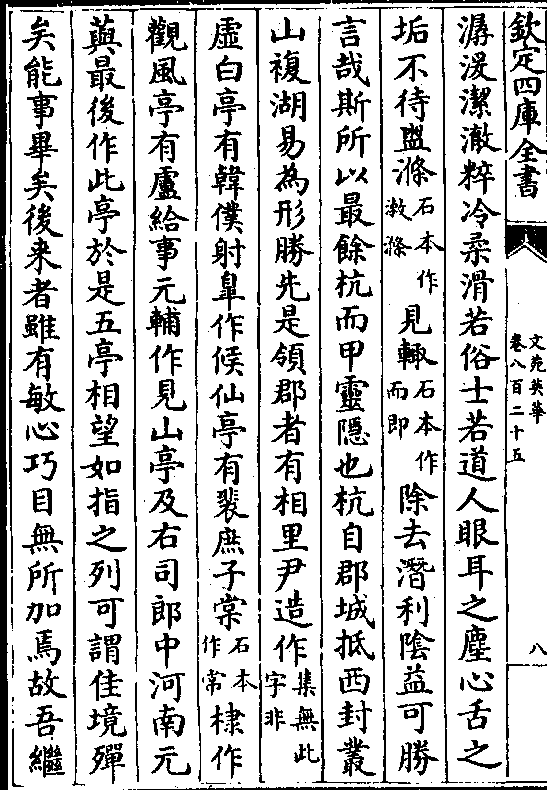 欽定四庫全書
文苑英華
卷八百二十五
八
潺湲潔澈粹冷柔滑若俗士若道人眼耳之塵心舌之
垢不待盥滌石本作漱滌見輙石本作而即除去潛利陰益可勝
言哉斯所以最餘杭而甲靈隱也杭自郡城抵西封叢
山複湖易為形勝先是領郡者有相里尹造作集無此字非
虛白亭有韓僕射臯作候仙亭有裴庶子棠石本作常棣作
觀風亭有盧給事元輔作見山亭及右司郎中河南元
藇最後作此亭於是五亭相望如指之列可謂佳境殫
矣能事畢矣後来者雖有敏心巧目無所加焉故吾繼